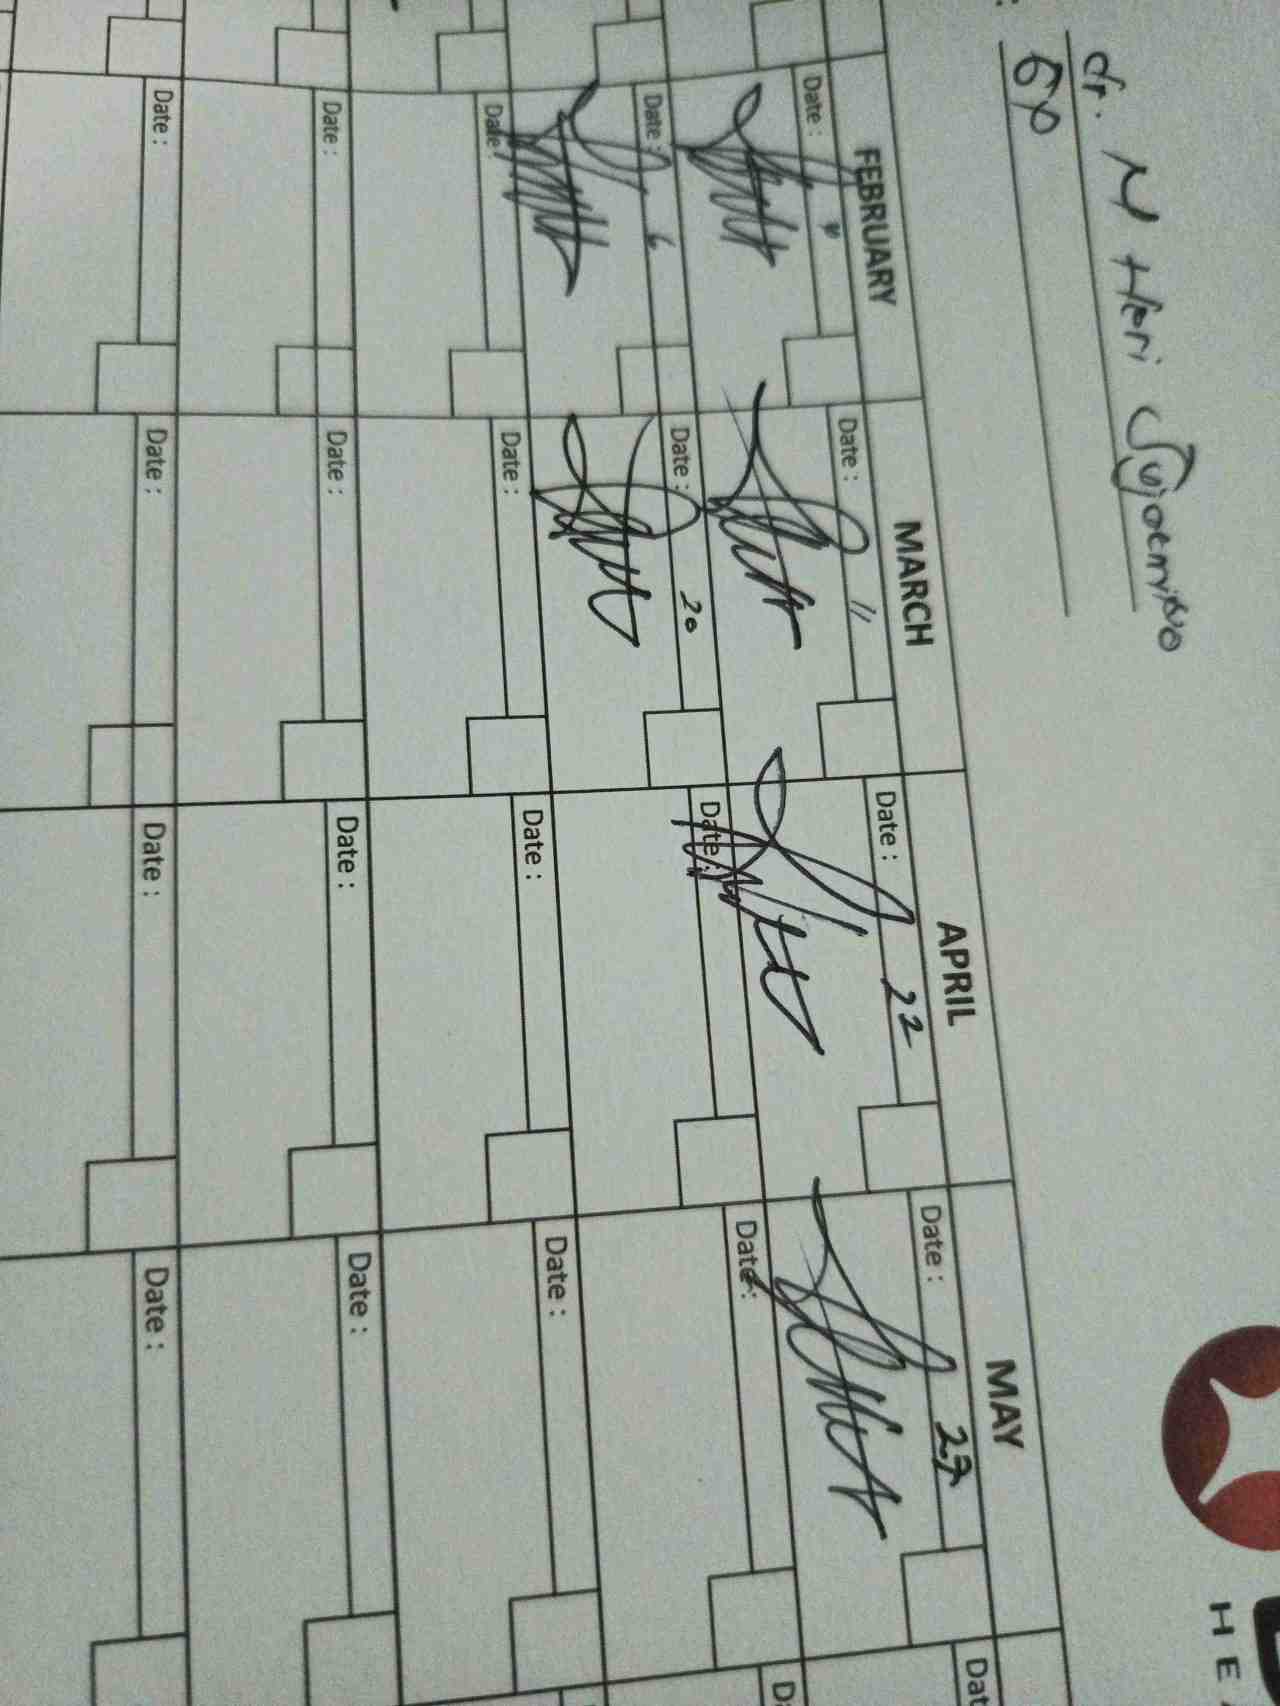 dr. N Heri
GP
FEBRUARY MARCH APRIL MAY
Date : Date : 11 Date : 22 Date : 27
Date : 6 Date : 20 Date : Date :
Date : Date : Date : Date :
Date : Date : Date : Date :
Date : Date : Date : Date :
HE